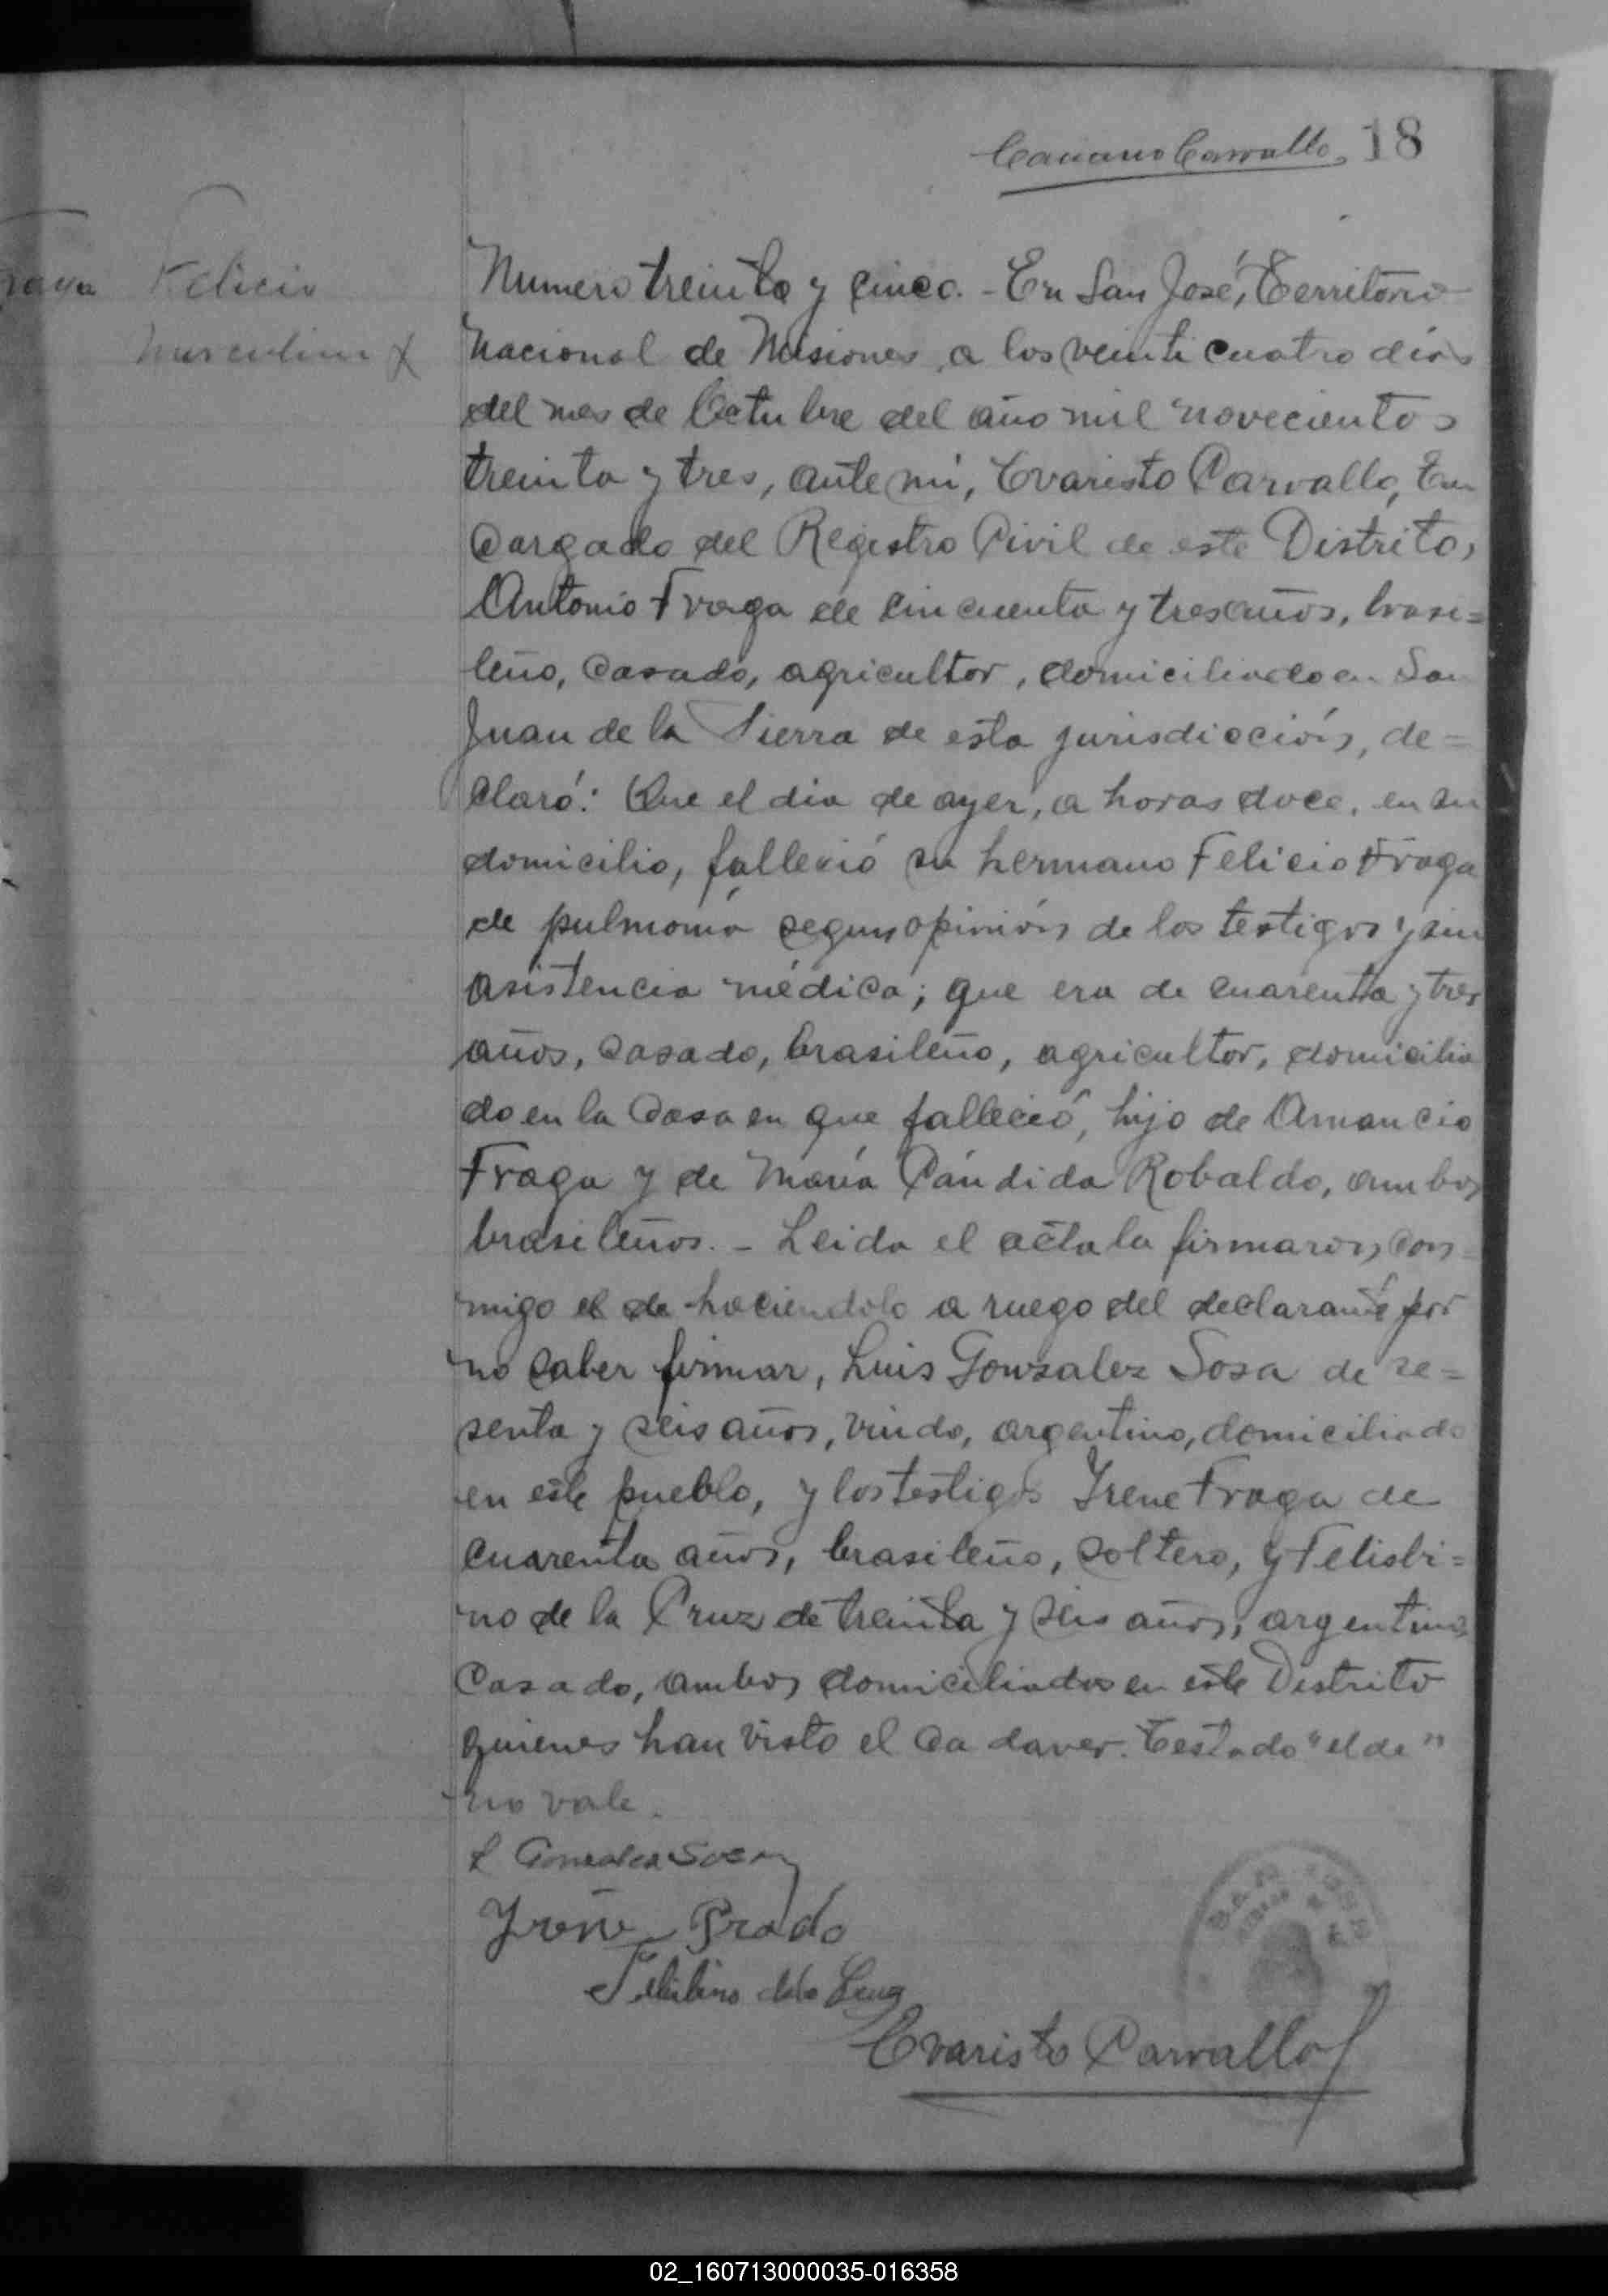 Carvallo. 18
Felicio
Masculino
Numero treinta y cinco. - En San José, Territorio
Nacional de Misiones, a los veinticuatro dias
del mes de Octubre del año mil novecientos
treinta y tres, ante mí, Evaristo Carvallo, En
cargado del Registro Civil de este Distrito,
Antonio Fraga de cincuenta y tres años, brasi=
leño, casado, agricultor, domiciliado en San
Juan de la Sierra de esta jurisdicción, de=
claró: Que el dia de ayer, a horas doce, en su
domicilio, falleció su hermano Felicio Fraga
de pulmonía segun opinión de los testigos y sin
asistencia médica; que era de cuarenta y tres
años, casado, brasileño, agricultor, domicilia
do en la casa en que falleció, hijo de Amancio
Fraga y de María Cándida Robaldo, ambos
brasileños. - Leida el acta la firmaron con=
migo el de haciendolo a ruego del declarante por
no saber firmar, Luis Gonzalez Sosa de se=
senta y seis años, viudo, argentino, domiciliado
en este pueblo, y los testigos Irene Fraga de
cuarenta años, brasileño, soltero, y Felisbi=
no de la Cruz de treinta y seis años, argentino
casado, ambos domiciliados en este Distrito
quienes han visto el cadaver. Testado "el de"
no vale.
L Gonzalez Sosa
Irene Prado
Felisbino de la Cruz
Evaristo Carvallo
02_160713000035-016358